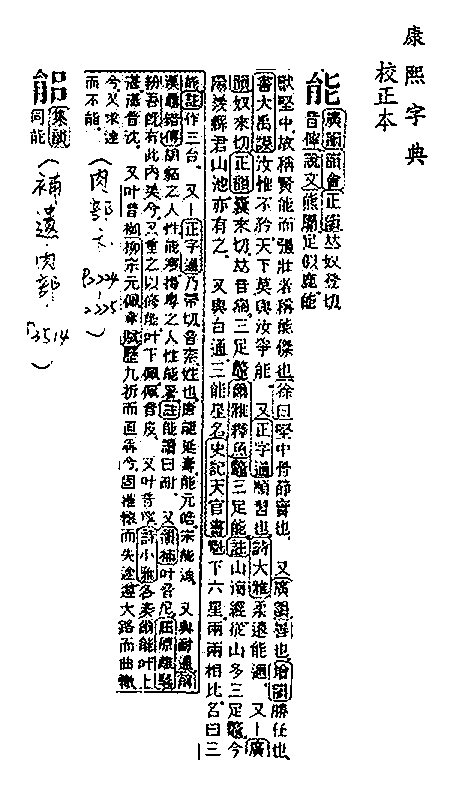 康熙字典
校正本
能 廣韻韻會正韻𠀤奴登切
音儜說文熊屬足似鹿能
獸堅中故稱賢能而彊壯者稱能傑也徐曰堅中骨節實也。 又廣韻善也增韻勝任也
書大禹謨汝惟不矜天下莫與汝爭能。 又正字通順習也詩大雅柔遠能邇。 又廣
韻奴來切正韻囊來切𠀤音 三足鼈爾雅釋魚鼈三足能註山海經從山多三足鼈今
陽羨縣君山池亦有之。 又與台通三能星名史記天官書魁下六星兩兩相比名曰三
能註作三台。 又正字通乃帶切音柰姓也唐能延壽能元皓宋能迪。 又與耐通前
漢鼂錯傳胡貊之人性能寒揚粵之人性能暑註能讀曰耐。 又韻補叶音尼屈原離騷
紛吾旣有此內美兮又重之以修能叶下佩佩音皮。 又叶音 詩小雅各奏爾能叶上
湛湛音沈。 又叶音 柳宗元佩韋賦歷九折而直奔兮固摧轅而失途遵大路而曲轍
兮又求達
而不能。
(肉部·六 P.224-225)
䏻 集韻
同能
(補遺·肉部 P.3514)